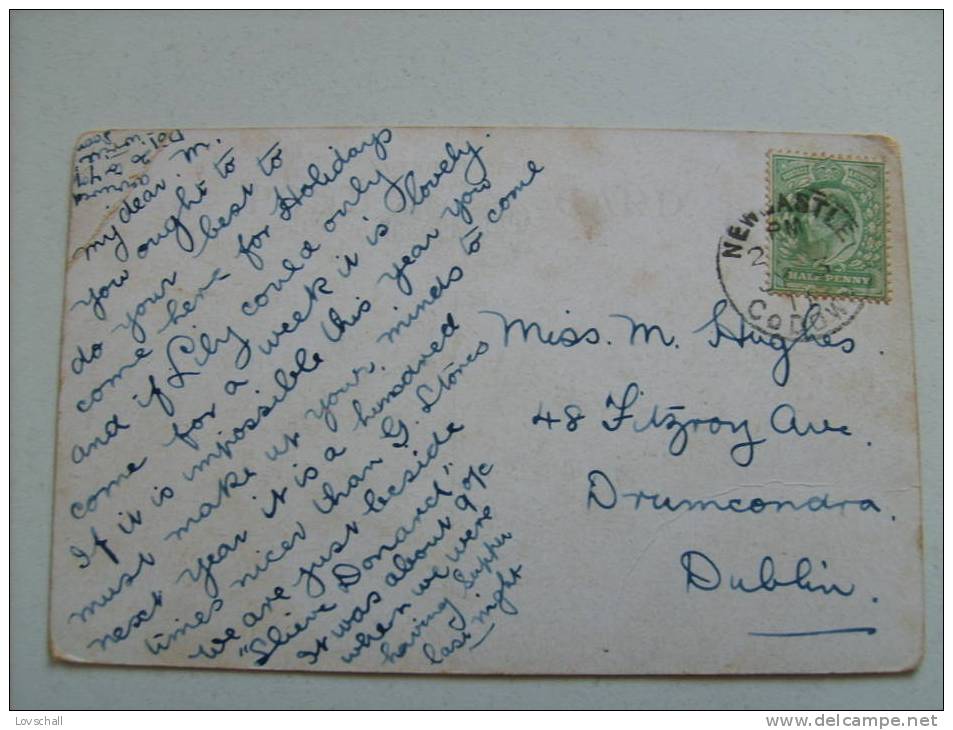 My dear M.
you ought to
do your best to
come here for Holidays
and if Lily could only
come for a week it is lovely.
If it is impossible this year you
must make up your minds to come
next year it is a hundred
times nicer than G. Stones
We are just beside
"Slieve Donard"
It was about 9 o/c
when we were
having supper
last night
to write
soon
Miss. M. Hughes.
48 Fitzroy Ave.
Drumcondra.
Dublin.
NEWCASTLE
PM
CO DOWN
HALFPENNY
Lovschall
www.delcampe.net